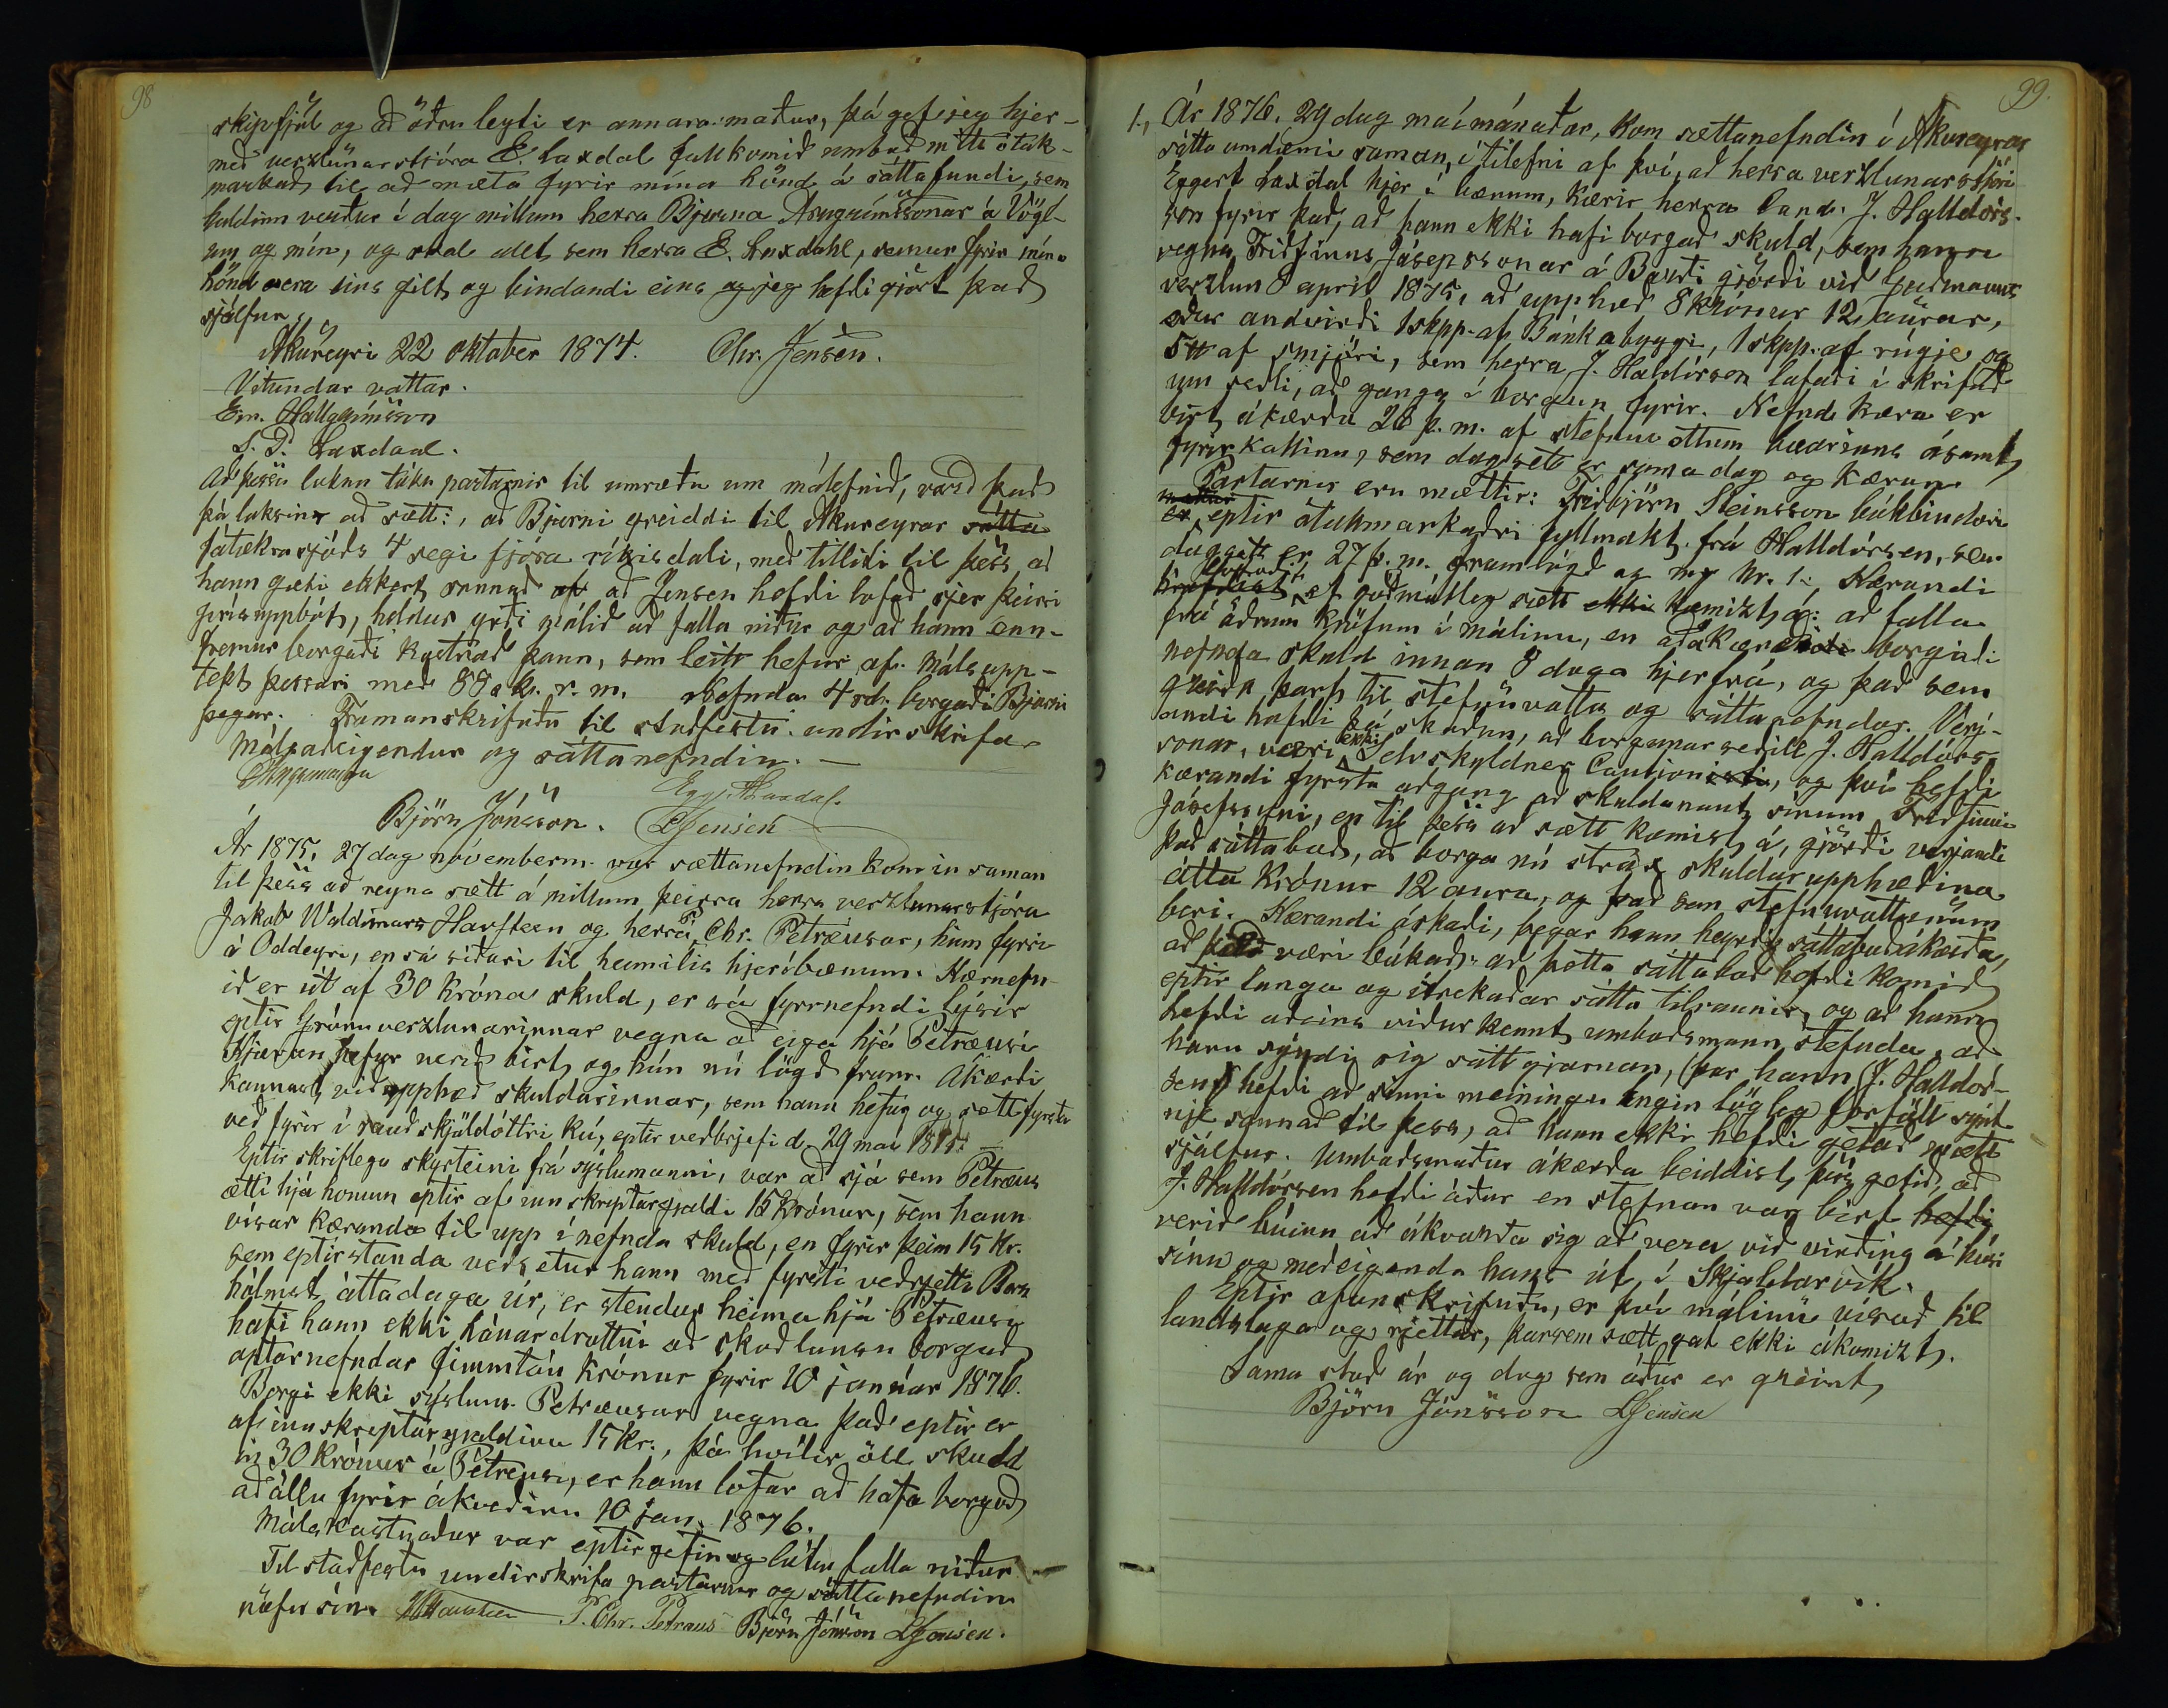 98
skipfjöl og að öðru leyti er annara maður, þá gef jeg hjer-
með verzlunarstjóra E. Laxdal fullkomið umboð mitt ótak-
markað til að mæta fyrir mína hönd á sáttafundi, sem
haldinn verður í dag millum herra Bjarna Arngrímssonar á Vögl-
um og mín, og skal allt sem herra E. Laxdahl, semur fyrir mína
hönd vera eins gilt og bindandi eins og jeg hefði gjört það
sjálfur.
Akureyri 22 oktober 1874. Chr. Jensen.
Vitundar vottar.
Em. Hallgrímsson
S. P. Laxdal.
Að þessu loknu tóku partarnir til umræðu um málefnið, varð það
þá loksins að sætt:, að Bjarni greiddi til Akureyrar sátta
fátækrasjóðs 4 segi fjóra ríkisdali, með tilliti til þess, að
hann gæti ekkert sannað af að Jensen hefði lofað sjer þeirri
prísuppbót, heldur yrði málið að falla niður og að hann enn-
fremur borgaði kostnað þann, sem leitt hefur af máls upp-
tekt þessari með 88 sk. r. m. Nefnda 4 rd. borgaði Bjarni
þegar. Framanskrifuðu til staðfestu undirskrifa
málsaðeigendur og sáttanefndin. —
Egg. Laxdal.
Björn Jónsson. LJensen
Ár 1875, 27 dag nóvemberm. var sættanefndin komin saman
til þess að reyna sætt á millum þeirra herra verzlunarstjóra
Jakob Waldimars Havsteen og herra P. Chr. Petræusar, hinn fyrri
á Oddeyri, en sá síðari til heimilis hjer í bænum. Kærnefn
ið er út af 30 króna skuld, er sá fyrrnefndi lýsir
eptir Gránuverzlunarinnar vegna að eiga hjá Petræusi
Kjæran hefur verið birt og hún nú lögð fram. Ákærði
kannast við upphæð skuldarinnar, sem hann hefur og sett fyrsta
veð fyrir í rauðskjöldóttri kú, eptir veðbrjefi d. 29 mai 1875. —
Eptir skriflegu skýrteini frá sýslumanni, var að sjá sem Petræus
ætti hjá honum eptir af innskriptargjaldi 15 krónur, sem hann
vísar kæranda til upp í nefnda skuld, en fyrir þeim 15 Kr.
sem eptirstanda veðsetur hann með fyrsti veðrjetti Born
hólmst áttadaga úr, er stendur heima hjá Petræusi
hafi hann ekki lánardrottni að skaðlausu borgað
optarnefndar fimmtán krónur fyrir 10 janúar 1876.
Borgi ekki sýslum. Petræusar vegna það eptir er
af innskriptargjaldinu 15 kr., þá hvílir öll skuld
in 30 krónur á Petreusi, er hann lofar að hafa borgað
að öllu fyrir ákveðinn 10 jan. 1876.
Málskostnaður var eptirgefin og látin falla niður
Til staðfestu undirskrifa partarnir og sáttanefndin
nöfn sín. JVHavsteen P. Chr. Petræus Björn Jónsson LJensen.
99.
1., Ár 1876, 29 dag maímánaðar, kom sættanefndin í Akureyrar
sátta umdæmi saman, í tilefni af því, að herra verzlunarstjóri
Eggert Laxdal hjer í bænum, kærir herra cand. J. Halldórs-
son fyrir það, að hann ekki hafi borgað skuld, sem hann
vegna Friðfinns Jósepssonar á Barði gjörði við Guðmanns
verzlun 8 april 1875, að upphæð 8 krónur 12 aurar,
eður andvirði 1 skpp. af Bánkabyggi, 1 skpp. af rúgje og
5 ℔ af smjöri, sem herra J. Haldórsson lofaði í skrifuð
um seðli, að ganga í borgun fyrir. Nefnd kæra er
birt ákærða 26 þ. m. af stefnuvottum bæarins ásamt
fyrirkallinu, sem dagsett er sama dag og kæran.
Partarnir eru mættir: Friðbjörn Steinsson bókbindari
er mættur eptir ótakmarkaðri fullmakt frá Halldórsen, sem
dagsett er 27 þ. m. framlögð og mrk Nr. 1., Kærandi
krafðist lofaði ef góðmótleg sætt ekki kæmizt á: að falla
frá öðrum kröfum í málinu, en að ákærði borgaði
nefnda skuld innan 8 daga hjerfrá, og það sem
greiða þarf til stefnuvotta og sáttanefndar. Verj-
andi hafði þá skoðun, að borgunarseðill J. Halldórs
sonar, væri ekki selvskyldner Cautionisti, og því hefði
kærandi fyrsta aðgang að skuldanaut sínum Friðfinni
Jósefssyni, en til þess að sætt kæmist á, gjörði verjandi
það sáttaboð, að borga nú strax skuldarupphæðina
átta krónur 12 aura, og það sem stefnuvottunum
beri. Kærandi áskaði, þegar hann heyrði sáttaboð ákærða,
að það væri bókað: að þetta sáttaboð hefði komið
eptir langa og ítrekaðar sátta tilraunir, og að hann
hefði aðeins viðurkennt umboðsmann stefnda, að
hann sýndi sig sáttgjarnan, þar hann J. Halldór-
sen hefði að sinni meiningu engin lögleg forföll synt
nje sannað til þess, að hann ekki hefði getað mætt
sjálfur. Umboðsmaður ákærða beiddist þess getið, að
J. Halldórsen hefði áður en stefnan var birt hefði
verið búinn að ákvarða sig að vera við virðing á húsi
sínu og meðeiganda hans út, í Skjaldarvík.
Eptir ofanskrifuðu, er því málinu vísað til
landslaga og rjettar, þarsem sætt gat ekki ákomizt.
Sama stað ár og dag sem áður er greint
Björn Jónsson LJensen